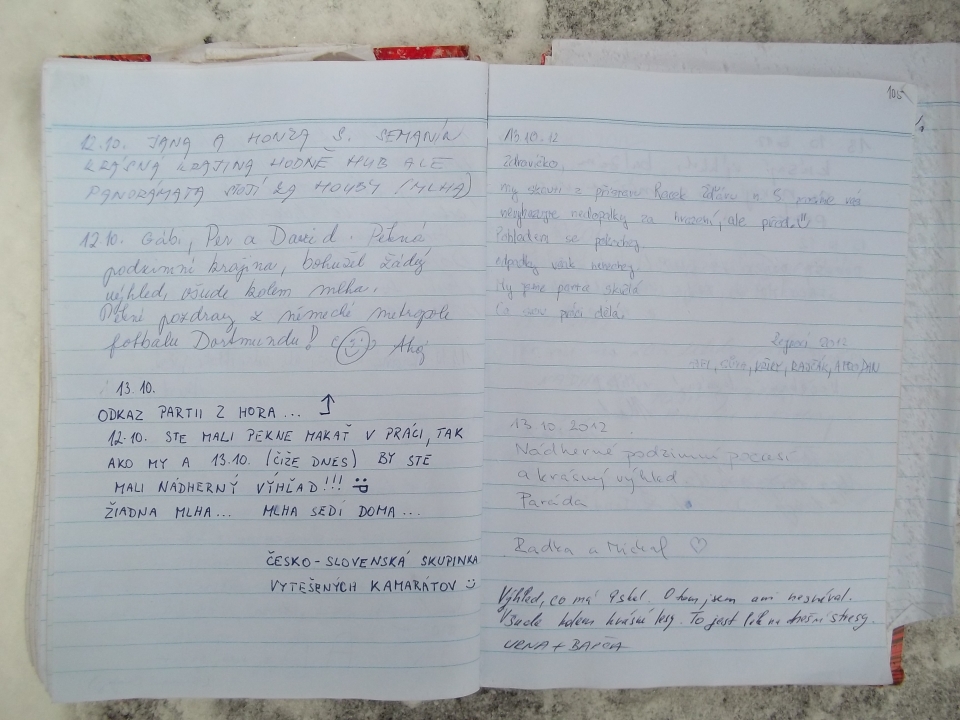 12.10. JANA A HONZA S. SEMANÍN
KRÁSNÁ KRAJINA HODNĚ HUB ALE
PANORÁMATA STOJÍ ZA HOUBY (MLHA)
12.10. Gábi, Petr a David. Pěkná
podzimní krajina, bohužel žádný
výhled, všude kolem mlha.
pozdrav z německé metropole
fotbalu Dortmundu! Ahoj
13.10.
ODKAZ PARTII Z HORA...
12.10. STE MALI PEKNE MAKAŤ V PRÁCI, TAK
AKO MY A 13.10. (ČIŽE DNES) BY STE
MALI NÁDHERNÝ VÝHĽAD!!! :D
ŽIADNA MLHA... MLHA SEDÍ DOMA...
ČESKO-SLOVENSKÁ SKUPINKA
VYTEŠENÝCH KAMARÁTOV :)
105
13.10.12
Zdravíčko,
my skauti z přístavu Racek Žďár n S
nevyhazujte nedopalky za hrazení, ale před!!!
Pohledem se pokochej
odpadky však nenechej
skvělá
práci dělá.
2012
13.10.2012
Nádherné podzimní počasí
a krásný výhled
Paráda
Radka a Michal ♡
Výhled, co má 9 skal. O tom jsem ani nesníval.
Všude kolem krásné lesy. To jest lék na dnešní stresy.